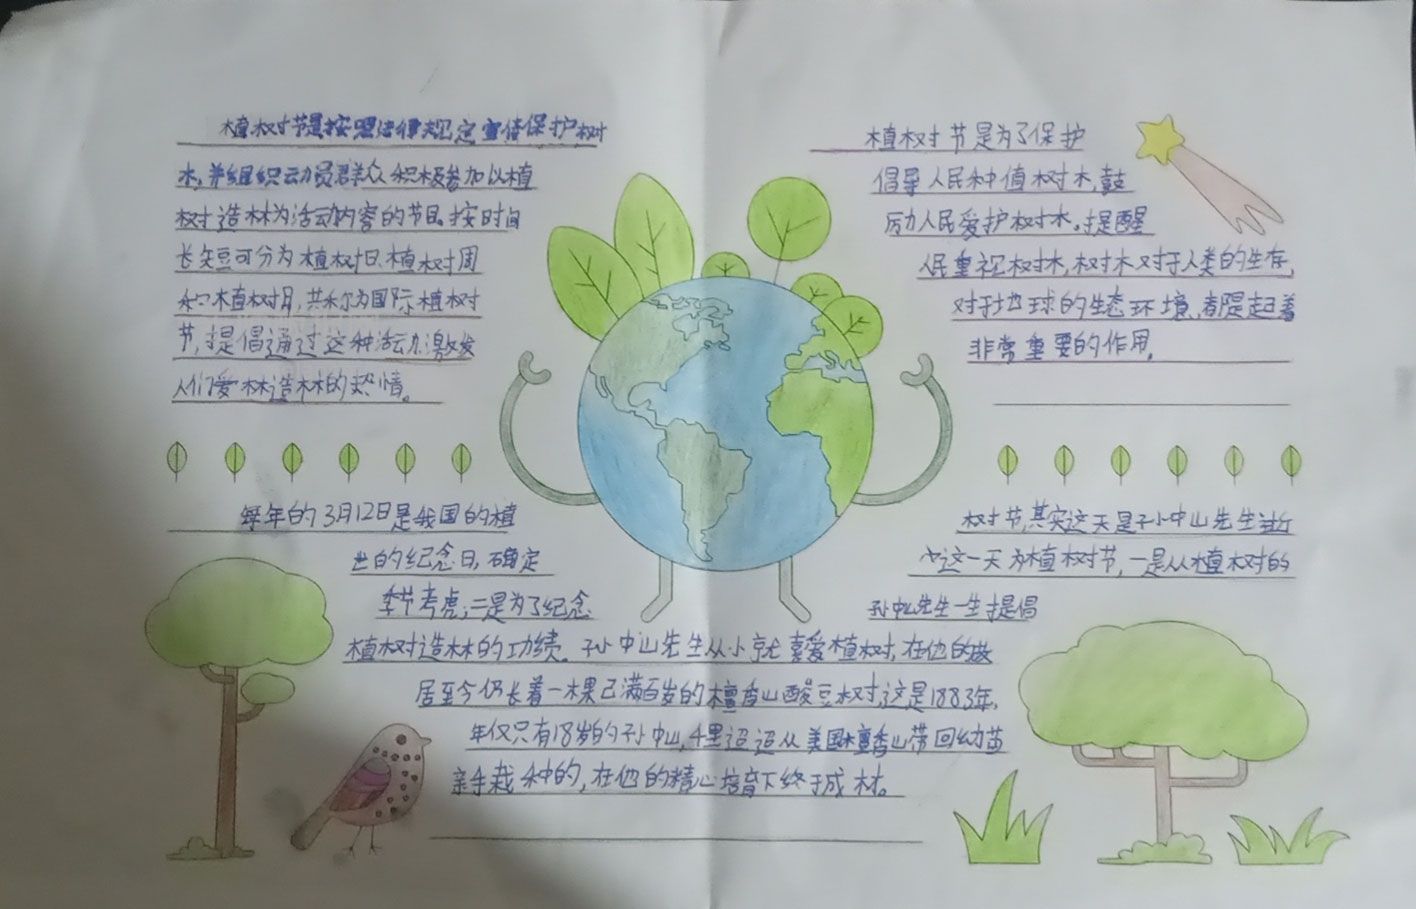 植树节是按照法律规定宣传保护树
木，并组织动员群众积极参加以植
树造林为活动内容的节日。按时间
长短可分为植树日、植树周
和植树月，共称为国际植树
节，提倡通过这种活动，激发
人们爱林造林的热情。
植树节是为了保护
倡导人民种值树木，鼓
励人民爱护树木。提醒
人民重视树木，树木对于人类的生存，
对于地球的生态环境，都是起着
非常重要的作用。
每年的3月12日是我国的植
树节，其实这天是孙中山先生逝
世的纪念日，确定
这一天为植树节，一是从植树的
季节考虑；二是为了纪念
孙中山先生一生提倡
植树造林的功绩。孙中山先生从小就喜爱植树，在他的故
居至今仍长着一棵已满百岁的檀香山酸豆树，这是1883年，
年仅只有18岁的孙中山，千里迢迢从美国檀香山带回幼苗
亲手栽种的，在他的精心培育下终于成材。